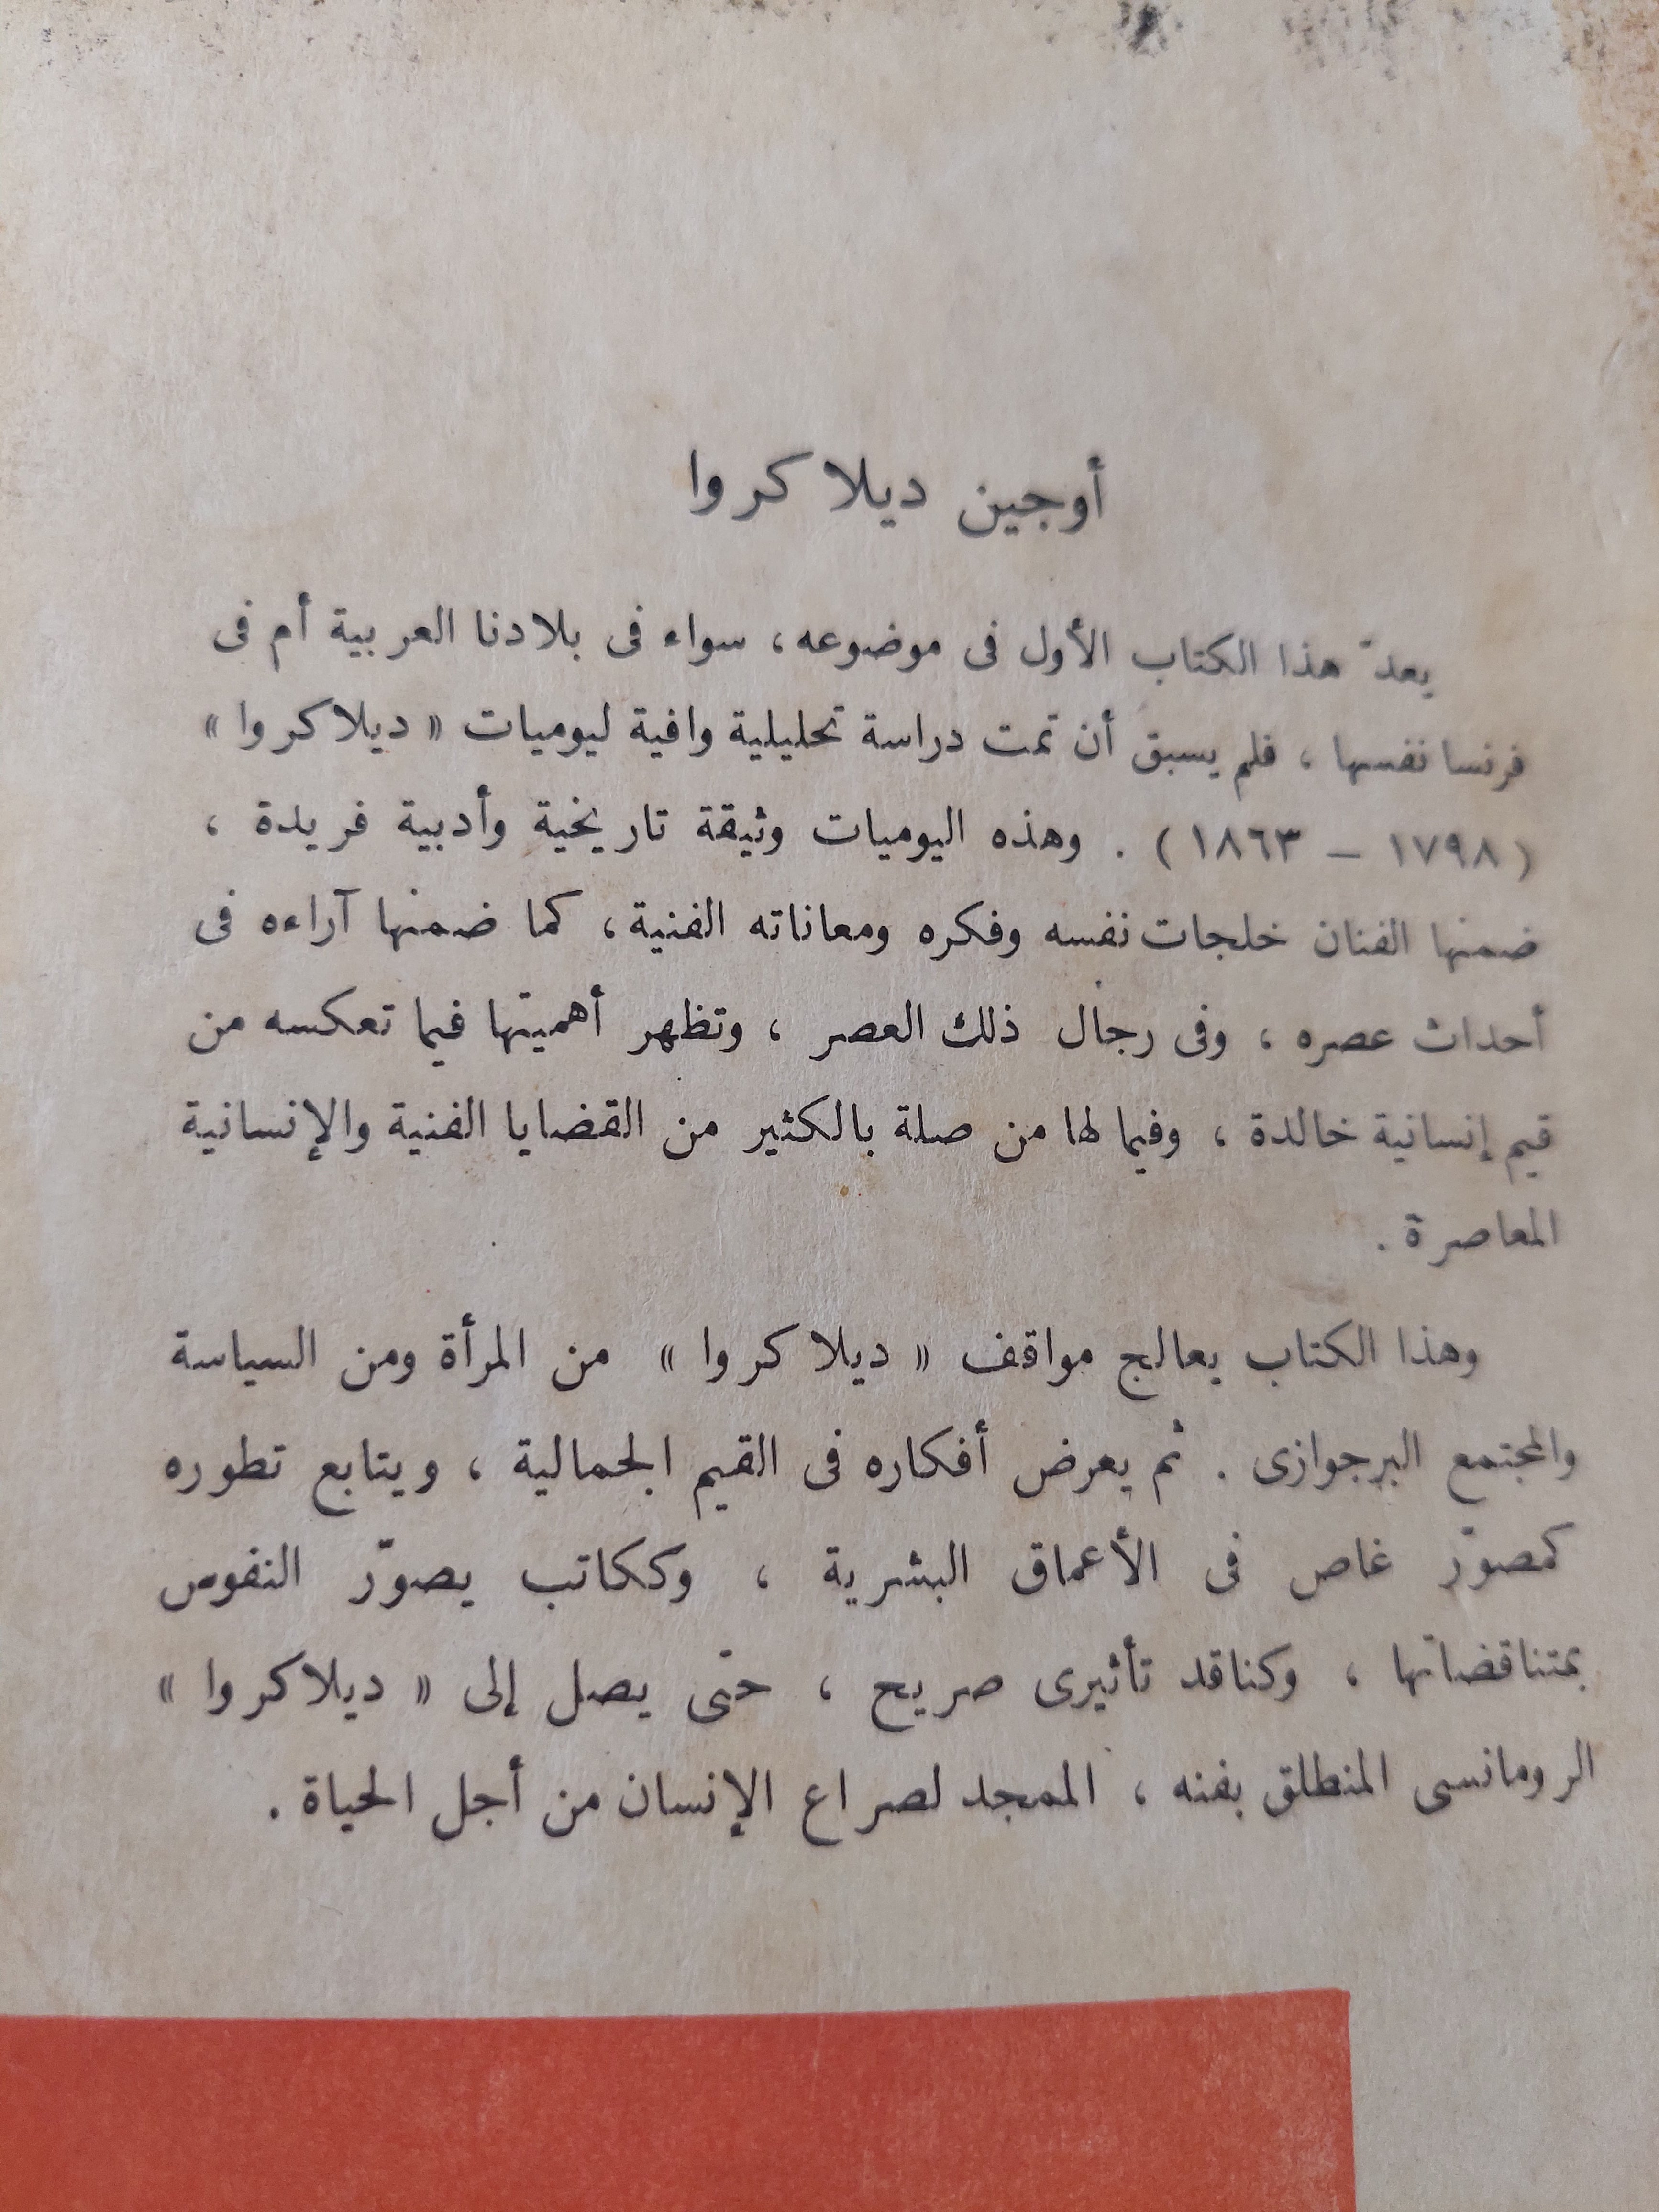 أوجين ديلاكروا
يعدّ هذا الكتاب الأول فى موضوعه، سواء فى بلادنا العربية أم فى
فرنسا نفسها ، فلم يسبق أن تمت دراسة تحليلية وافية ليوميات « ديلاكروا »
( ١٧٩٨ – ١٨٦٣ ) . وهذه اليوميات وثيقة تاريخية وأدبية فريدة ،
ضمنها الفنان خلجات نفسه وفكره ومعاناته الفنية، كما ضمنها آراءه فى
أحداث عصره ، وفى رجال ذلك العصر ، وتظهر أهميتها فيما تعكسه من
قيم إنسانية خالدة ، وفيما لها من صلة بالكثير من القضايا الفنية والإنسانية
المعاصرة .
وهذا الكتاب يعالج مواقف « ديلاكروا » من المرأة ومن السياسة
والمجتمع البرجوازى . ثم يعرض أفكاره فى القيم الجمالية ، ويتابع تطوره
كمصوّر غاص فى الأعماق البشرية ، وككاتب يصوّر النفوس
بمتناقضاتها ، وكناقد تأثيرى صريح ، حتى يصل إلى « ديلاكروا »
الرومانسى المنطلق بفنه ، الممجد لصراع الإنسان من أجل الحياة .